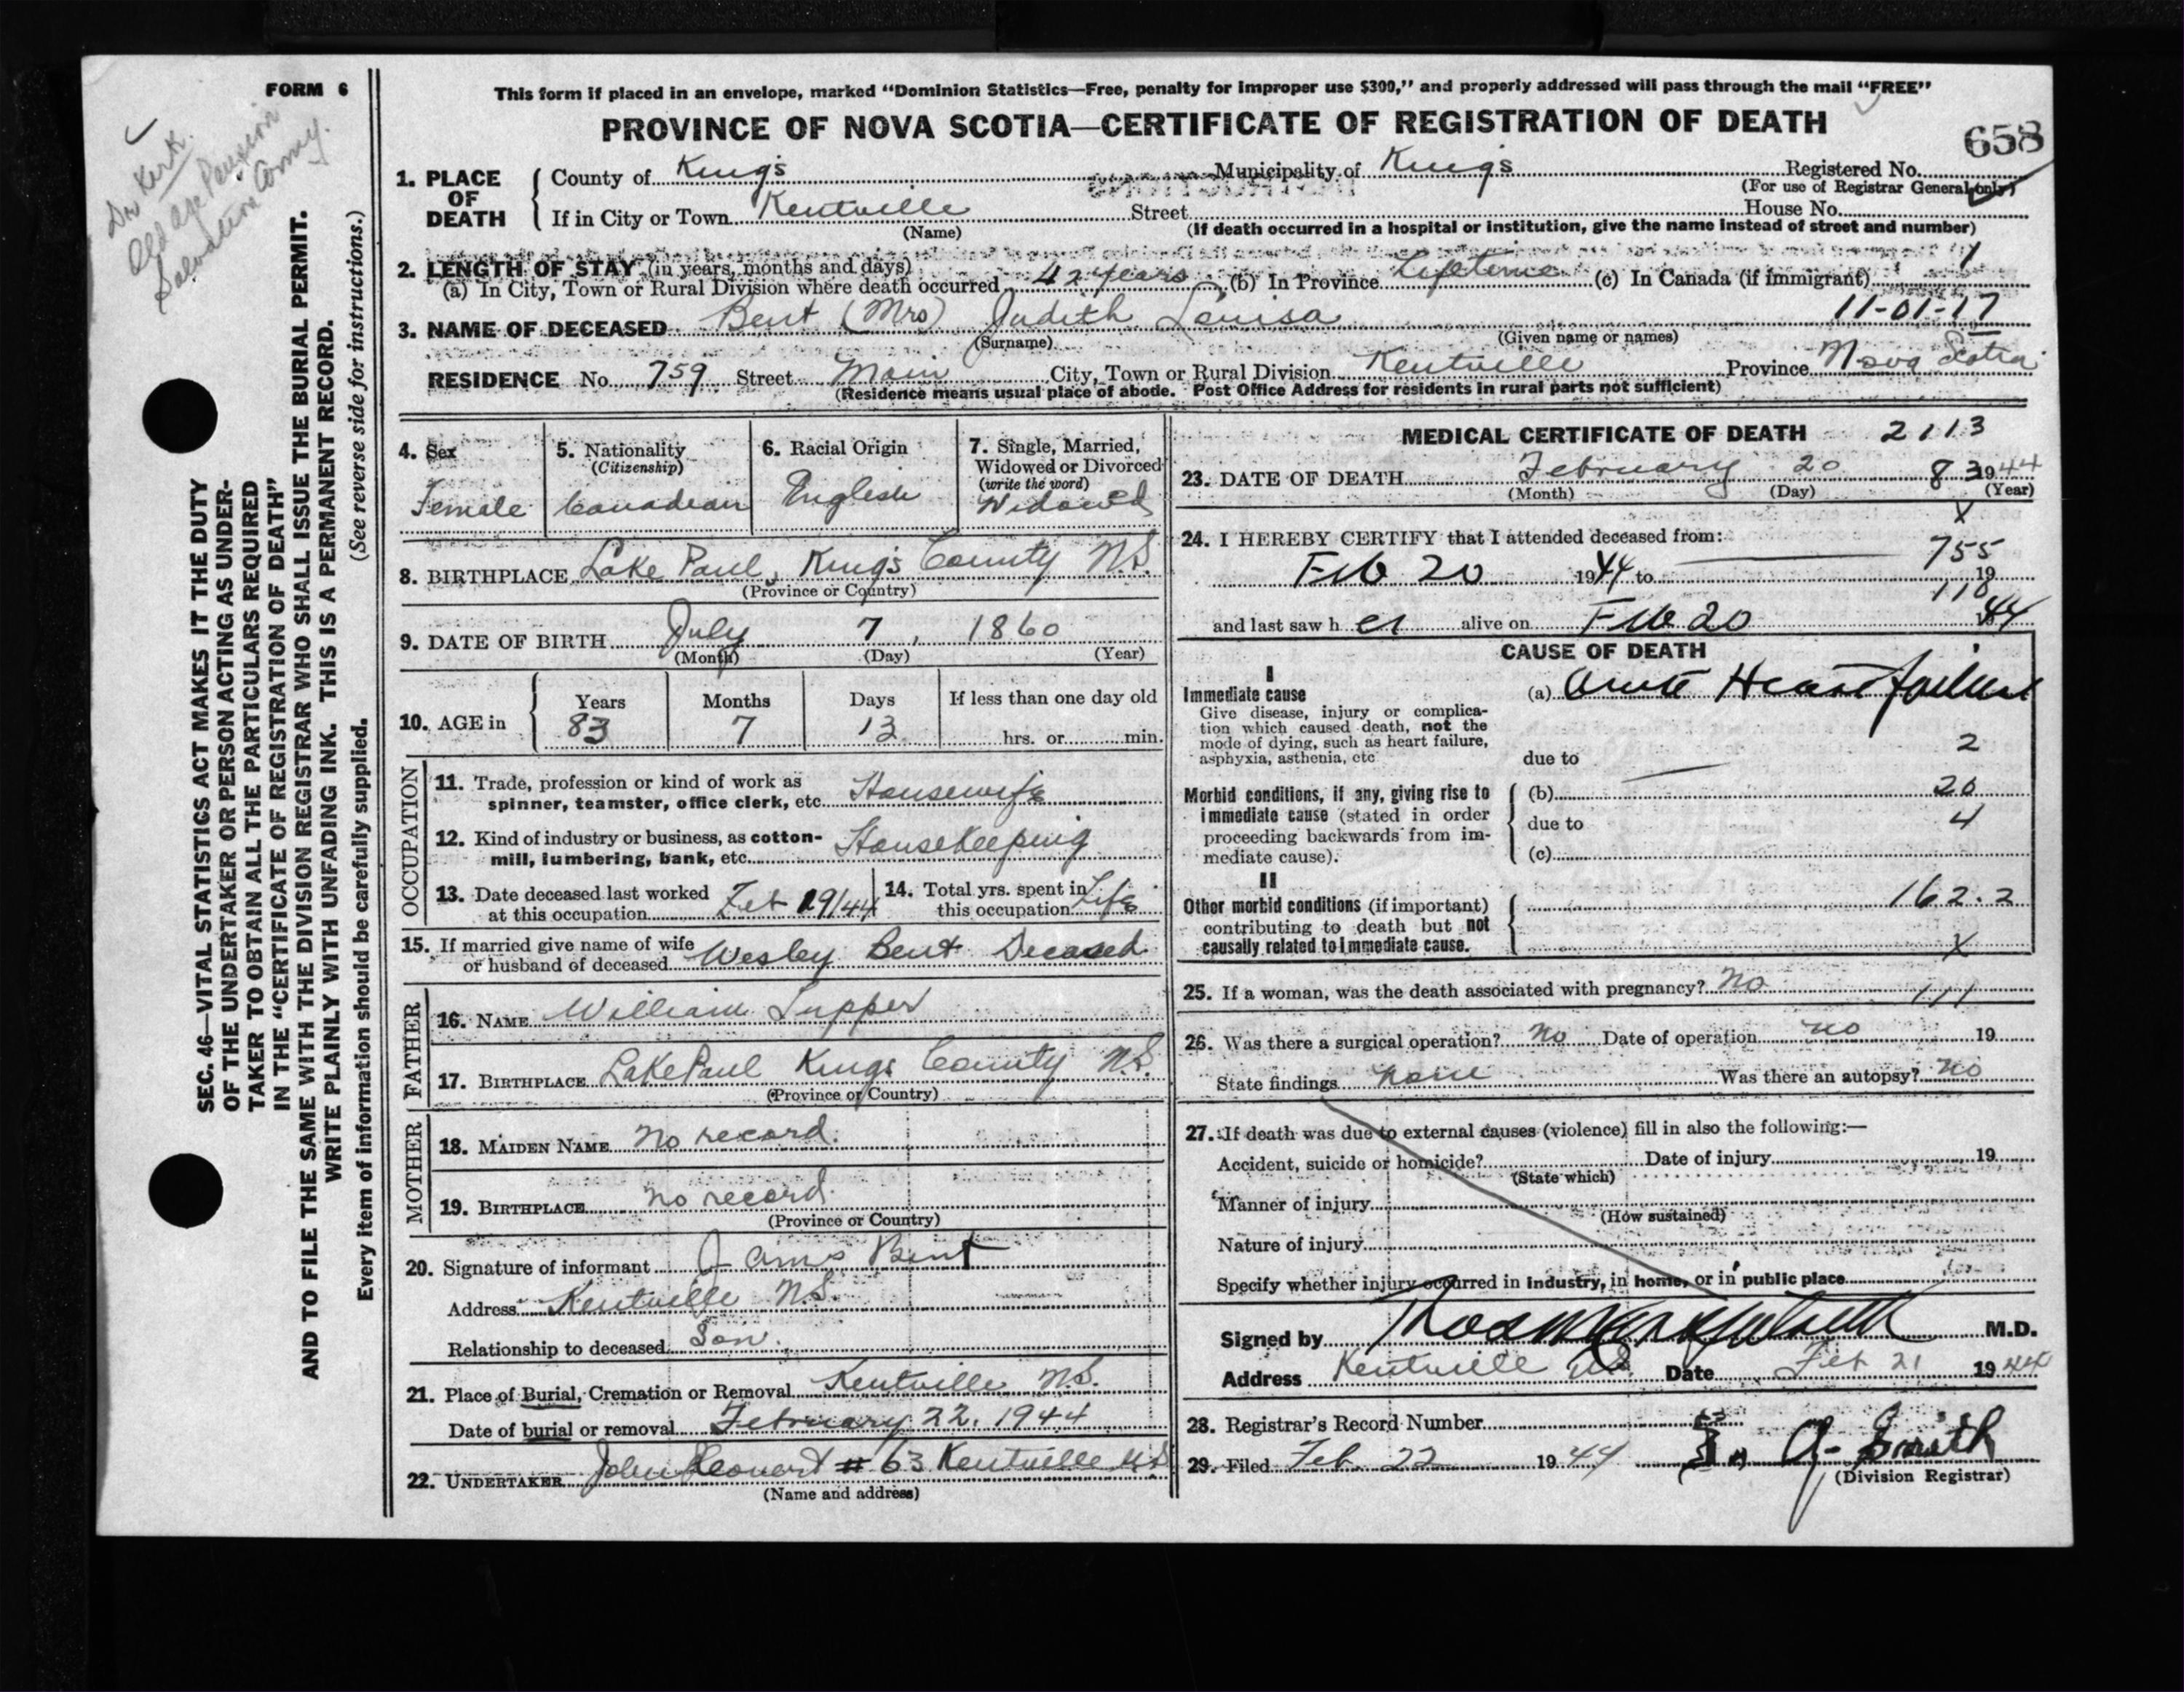 FORM 6
Dr Kerk.
Old Age Pension
Salvation Army.
SEC. 46—VITAL STATISTICS ACT MAKES IT THE DUTY
OF THE UNDERTAKER OR PERSON ACTING AS UNDER-
TAKER TO OBTAIN ALL THE PARTICULARS REQUIRED
IN THE "CERTIFICATE OF REGISTRATION OF DEATH"
AND TO FILE THE SAME WITH THE DIVISION REGISTRAR WHO SHALL ISSUE THE BURIAL PERMIT.
WRITE PLAINLY WITH UNFADING INK. THIS IS A PERMANENT RECORD.
Every item of information should be carefully supplied. (See reverse side for instructions.)
This form if placed in an envelope, marked "Dominion Statistics—Free, penalty for improper use $300," and properly addressed will pass through the mail "FREE"
PROVINCE OF NOVA SCOTIA—CERTIFICATE OF REGISTRATION OF DEATH
658
1. PLACE OF DEATH County of King's Municipality of King's Registered No.
(For use of Registrar General only)
If in City or Town Kentville Street House No.
(Name) (If death occurred in a hospital or institution, give the name instead of street and number)
2. LENGTH OF STAY (in years, months and days)
(a) In City, Town or Rural Division where death occurred 42 years (b) In Province Lifetime (c) In Canada (if immigrant)
11-01-17
3. NAME OF DECEASED Bent (Mrs) Judith Louisa
(Surname) (Given name or names)
RESIDENCE No. 759 Street Main City, Town or Rural Division Kentville Province Nova Scotia
(Residence means usual place of abode. Post Office Address for residents in rural parts not sufficient)
4. Sex
Female
5. Nationality
(Citizenship)
Canadian
6. Racial Origin
English
7. Single, Married,
Widowed or Divorced
(write the word)
Widowed
8. BIRTHPLACE Lake Paul, King's County N.S.
(Province or Country)
9. DATE OF BIRTH July 7, 1860
(Month) (Day) (Year)
10. AGE in
Years Months Days If less than one day old
83 7 13 hrs. or min.
OCCUPATION
11. Trade, profession or kind of work as
spinner, teamster, office clerk, etc. Housewife
12. Kind of industry or business, as cotton-
mill, lumbering, bank, etc. Housekeeping
13. Date deceased last worked
at this occupation Feb 19/44
14. Total yrs. spent in
this occupation Life
15. If married give name of wife
or husband of deceased Wesley Bent Deceased
FATHER
16. NAME William Lupper
17. BIRTHPLACE Lake Paul Kings County N.S.
(Province or Country)
MOTHER
18. MAIDEN NAME No record.
19. BIRTHPLACE no record.
(Province or Country)
20. Signature of informant James Bent
Address Kentville N.S.
Relationship to deceased Son.
21. Place of Burial, Cremation or Removal Kentville N.S.
Date of burial or removal February 22, 1944
22. UNDERTAKER John # 63 Kentville N.S
(Name and address)
MEDICAL CERTIFICATE OF DEATH 2113
23. DATE OF DEATH February 20 83 1944
(Month) (Day) (Year)
X
24. I HEREBY CERTIFY that I attended deceased from:
755
Feb 20 1944 to 19
110
and last saw her alive on Feb 20 44
CAUSE OF DEATH
I
Immediate cause
Give disease, injury or complica-
tion which caused death, not the
mode of dying, such as heart failure,
asphyxia, asthenia, etc
(a) Acute Heart failure
2
due to
Morbid conditions, if any, giving rise to
immediate cause (stated in order
proceeding backwards from im-
mediate cause).
(b) 20
due to 4
(c)
II
Other morbid conditions (if important)
contributing to death but not
causally related to immediate cause.
162.2
X
25. If a woman, was the death associated with pregnancy? No
111
26. Was there a surgical operation? no Date of operation no 19
State findings none Was there an autopsy? no
27. If death was due to external causes (violence) fill in also the following:—
Accident, suicide or homicide? Date of injury 19
(State which)
Manner of injury
(How sustained)
Nature of injury
Specify whether injury occurred in industry, in home, or in public place
Signed by M.D.
Address Kentville N.S. Date Feb 21 1944
28. Registrar's Record Number 53
29. Filed Feb. 22 1944 Smith
(Division Registrar)